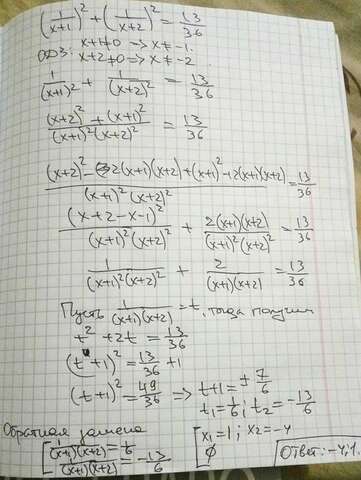 (1/(x+1))² + (1/(x+2))² = 13/36
ОДЗ: x+1≠0 => x≠-1.
x+2≠0 => x≠-2
1/(x+1)² + 1/(x+2)² = 13/36
((x+2)² + (x+1)²)/((x+1)²(x+2)²) = 13/36
((x+2)² - 2(x+1)(x+2) + (x+1)² + 2(x+1)(x+2))/((x+1)²(x+2)²) = 13/36
(x+2-x-1)²/((x+1)²(x+2)²) + 2(x+1)(x+2)/((x+1)²(x+2)²) = 13/36
1/((x+1)²(x+2)²) + 2/((x+1)(x+2)) = 13/36
Пусть 1/((x+1)(x+2)) = t, тогда получим
t² + 2t = 13/36
(t+1)² = 13/36 + 1
(t+1)² = 49/36 => t+1 = ±7/6
t₁ = 1/6; t₂ = -13/6
Обратная замена
[1/((x+1)(x+2)) = 1/6
1/((x+1)(x+2)) = -13/6
[x₁ = 1; x₂ = -4
∅
Ответ: -4; 1.